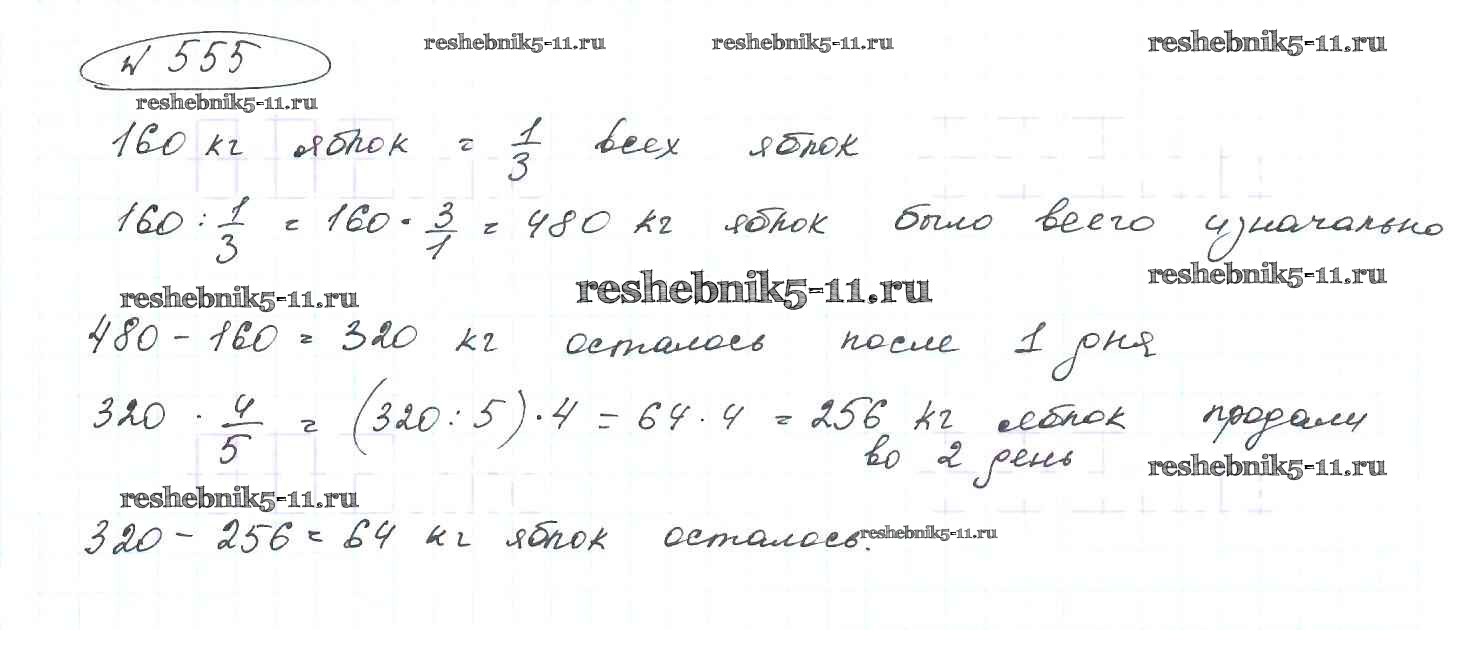 № 555 reshebnik5-11.ru reshebnik5-11.ru reshebnik5-11.ru
reshebnik5-11.ru
160 кг яблок = 1/3 всех яблок
160 : 1/3 = 160 · 3/1 = 480 кг яблок было всего изначально
reshebnik5-11.ru reshebnik5-11.ru reshebnik5-11.ru
480 - 160 = 320 кг осталось после 1 дня
320 · 4/5 = (320 : 5) · 4 = 64 · 4 = 256 кг яблок продали
во 2 день reshebnik5-11.ru
reshebnik5-11.ru
320 - 256 = 64 кг яблок осталось. reshebnik5-11.ru